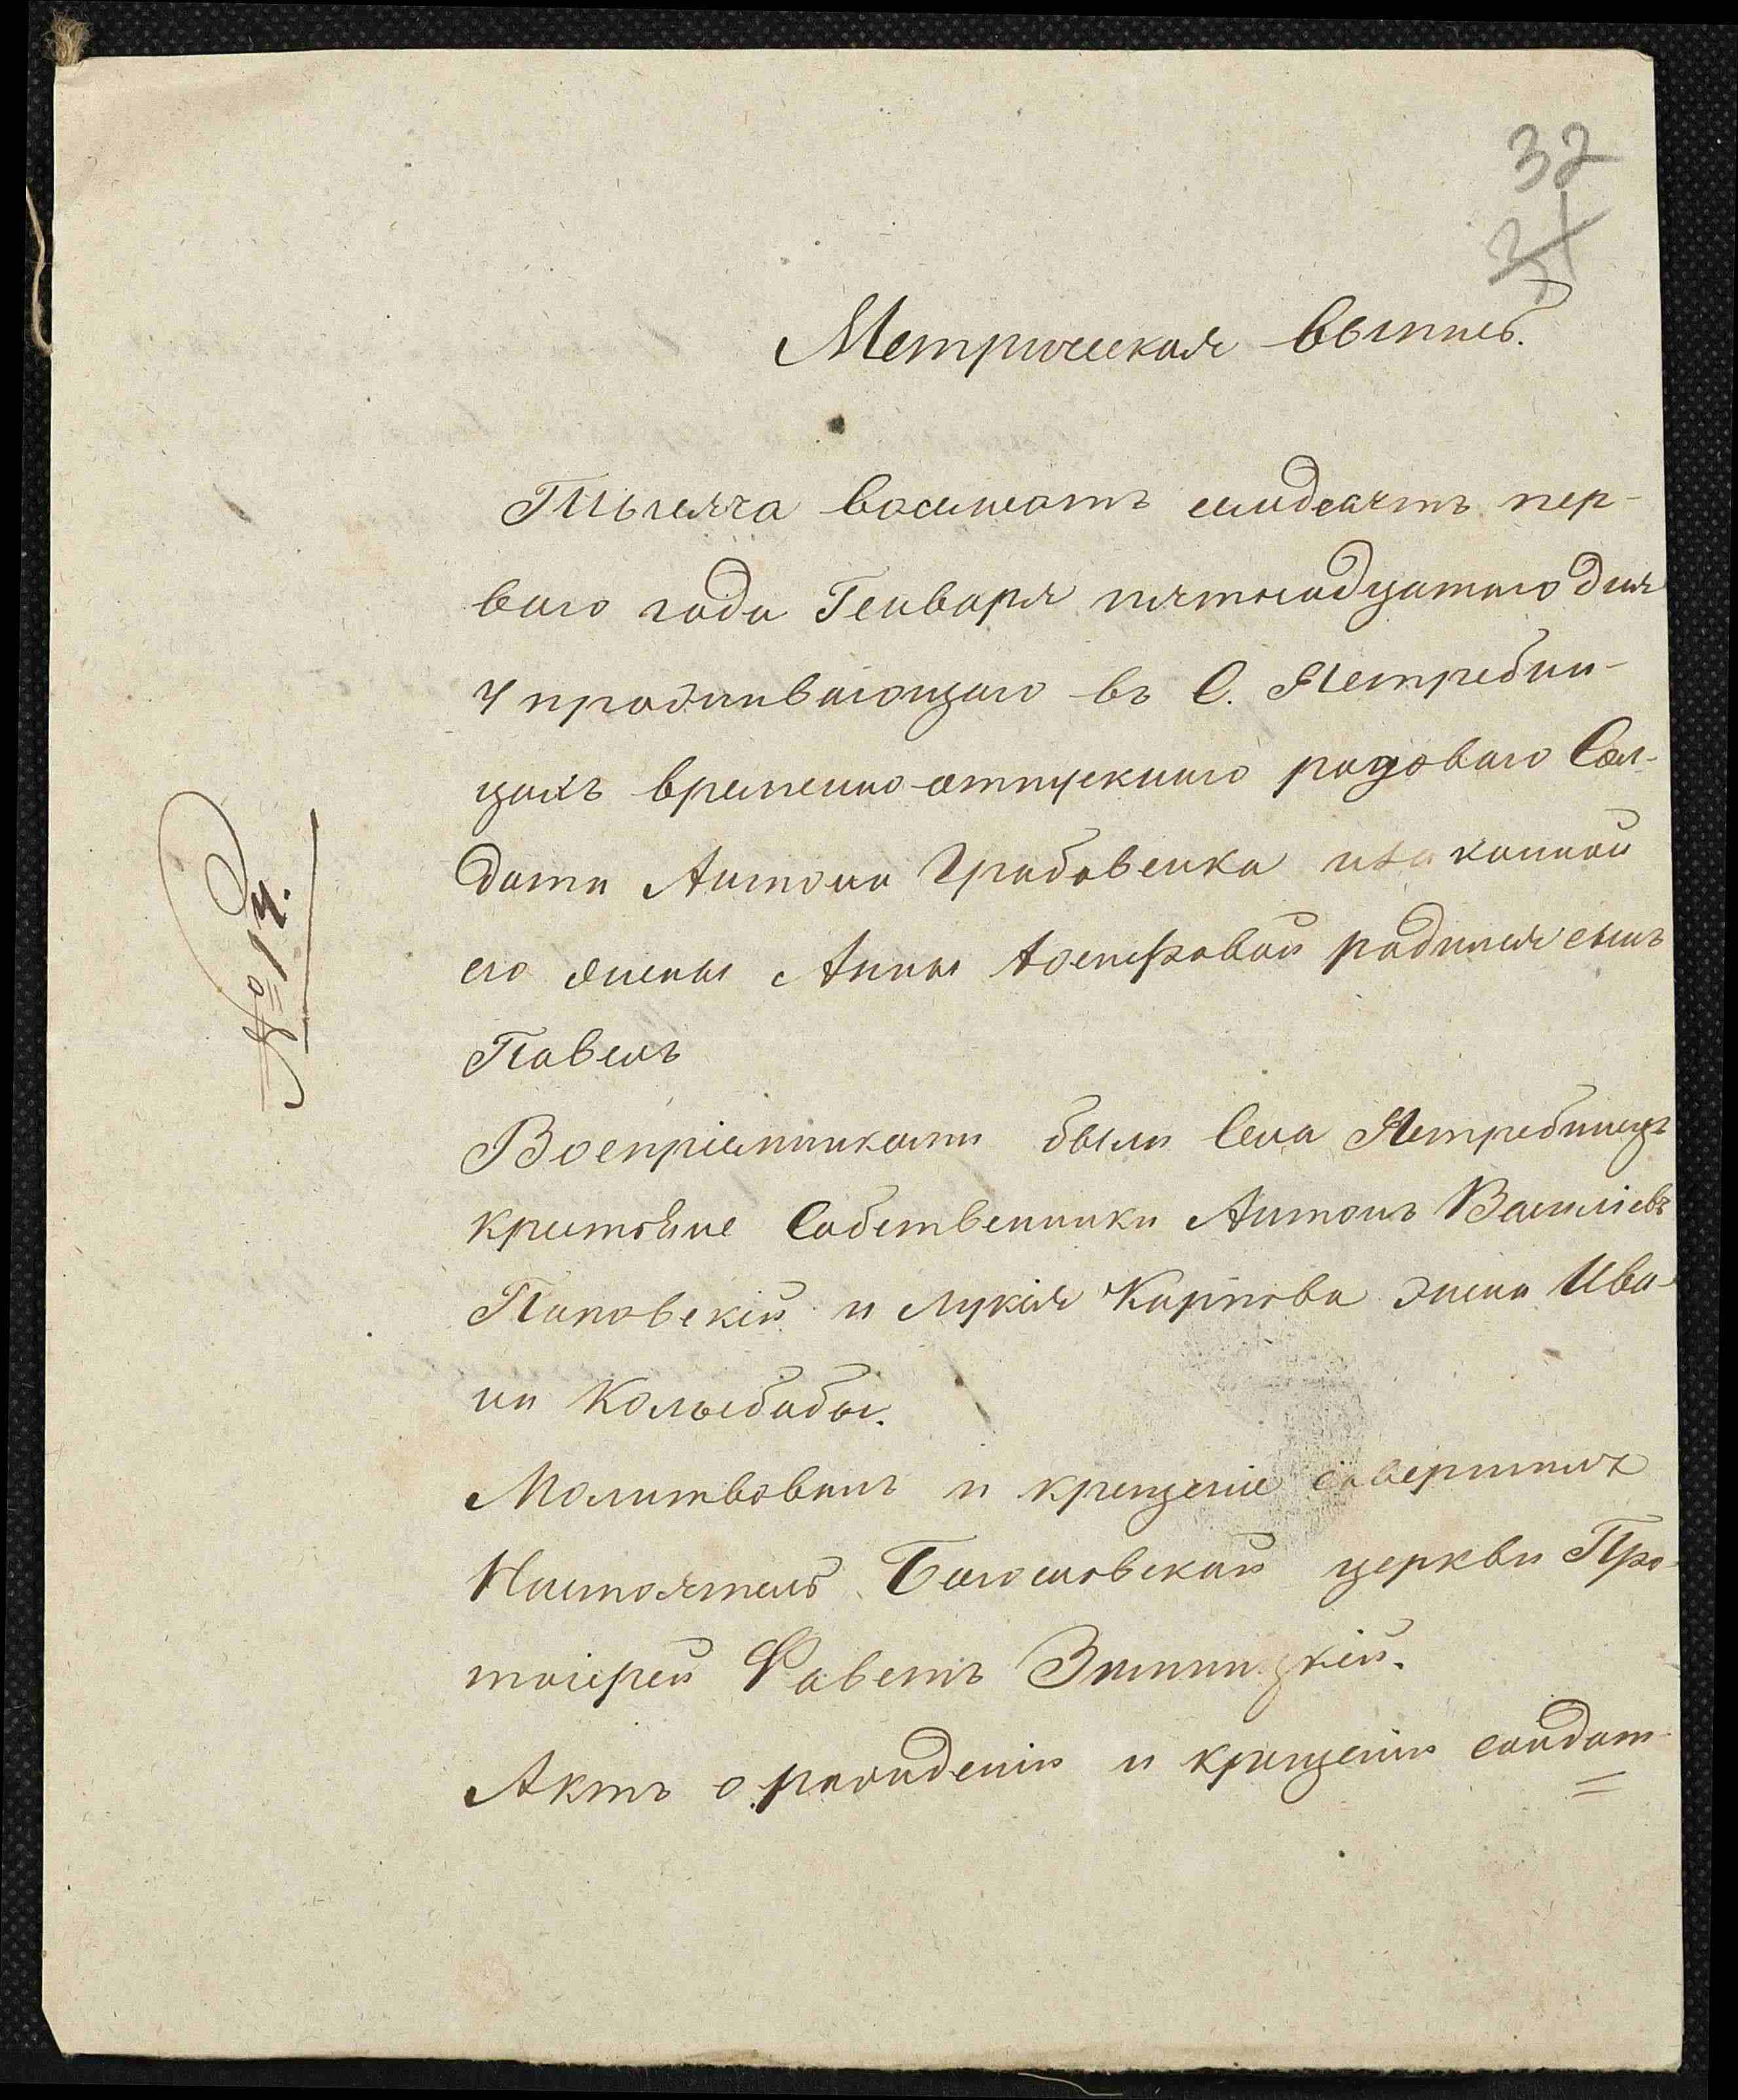 32
31
Метрическая выпись.
Тысяча восемсотъ семдесятъ пер-
ваго года Генваря пятнадцатаго дня
У проживающаго въ С. Ястребин-
цахъ временно-отпускнаго рядоваго Сол-
дата Антона Грабовенка изаконной
его жены Анны Іосифовой родился сынъ
Павелъ
Воспріемниками были Села Ястребинецъ
крестьяне Собственники Антонъ Василіевъ
Пановскій и Лукія Карпова жена Ива-
на Колыбабы.
Молитвовалъ и крещеніе совершилъ
Настоятель Богословской церкви Про-
тоіерей Фавстъ Зѣлинскій.
Актъ о рожденіи и крещеніи солдат-
№ 14.